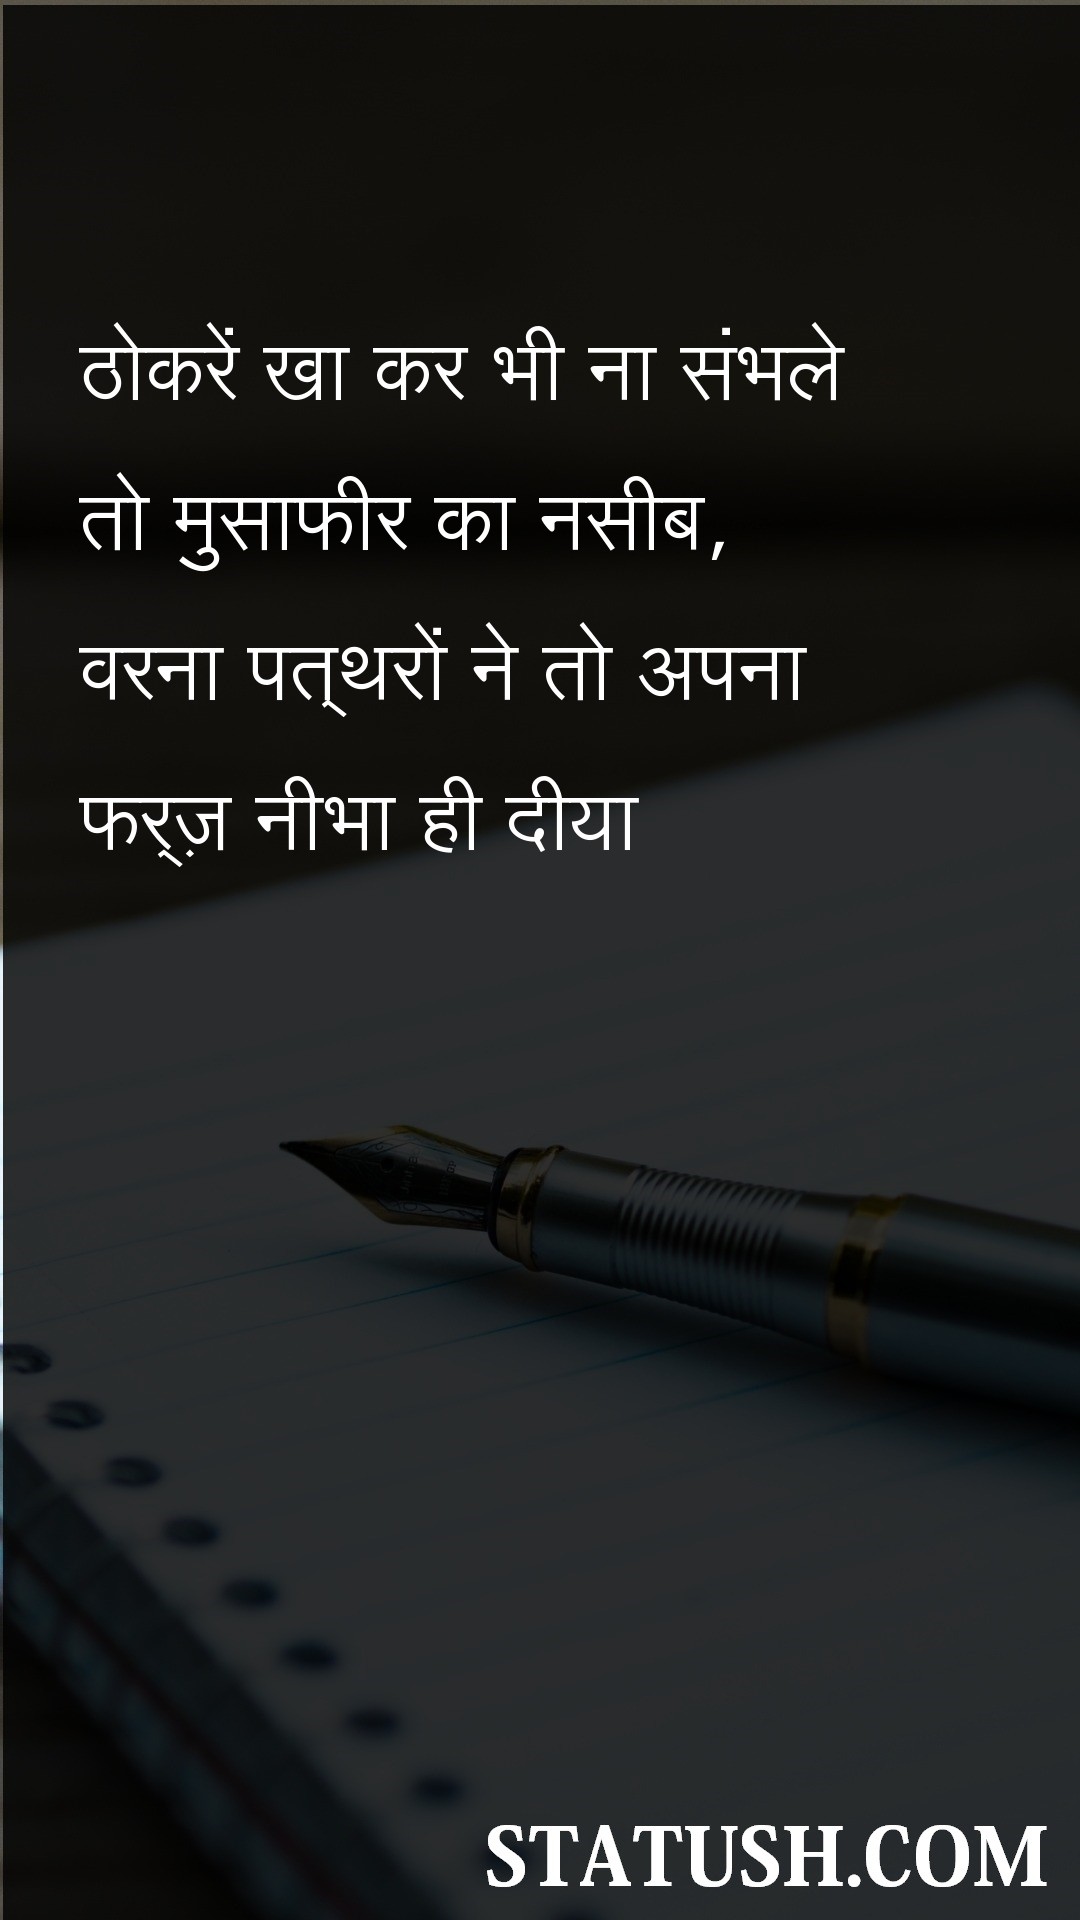 ठोकरें खा कर भी ना संभले
तो मुसाफीर का नसीब,
वरना पत्‌थरों ने तो अपना
फर्‌ज़ नीभा ही दीया
STATUSH.COM